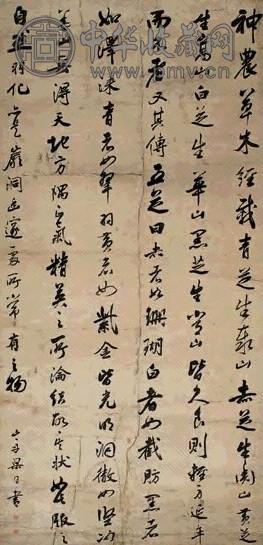 中华收藏网
神農草木經載青芝生泰山赤芝生衡山黄芝
生嵩山白芝生華山黑芝生常山皆久食則輕身延年
而者又其傳五芝曰赤者如珊瑚白者如截肪黑者
如澤漆青者如翠羽黄者如紫金皆光明洞徹如堅冰
山岳得天地方隅之氣精英之所淪結故其状服之
自羽化是巖洞幽邃處所常有之物
山舟梁同書